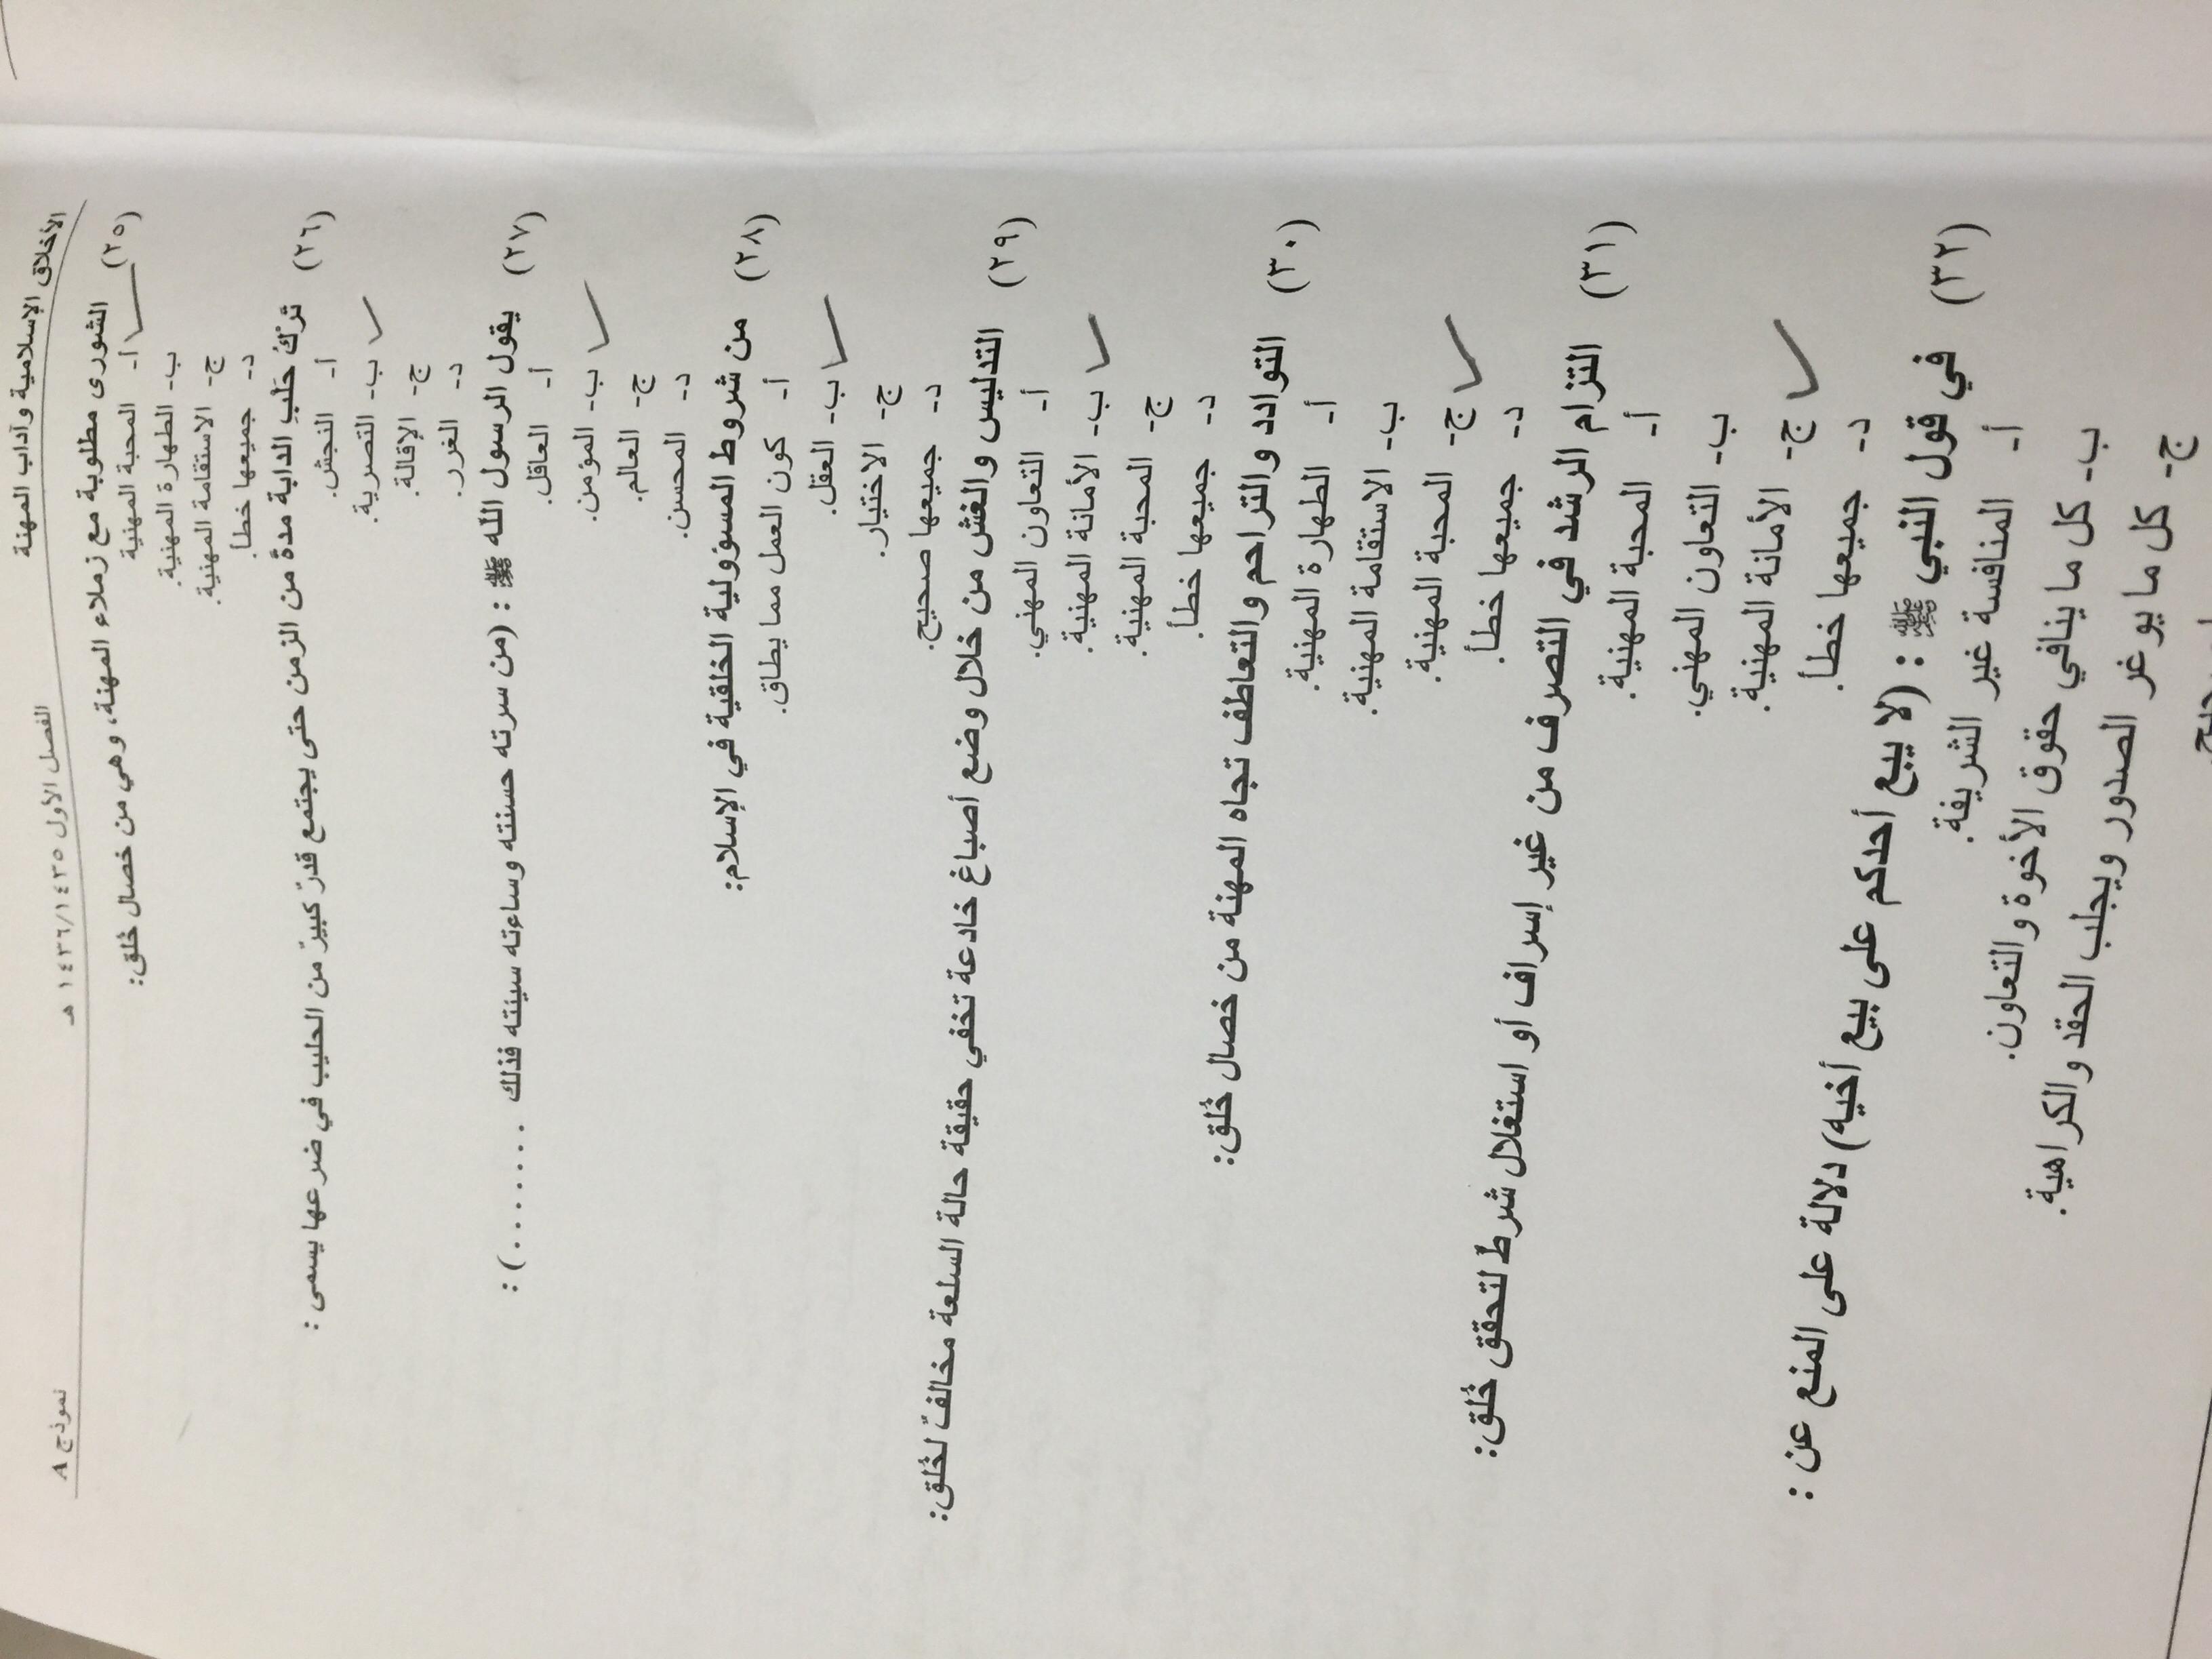 الأخلاق الإسلامية وآداب المهنة
الفصل الأول ١٤٣٦/١٤٣٥ هـ
نموذج A
(٢٥) الشورى مطلوبة مع زملاء المهنة، وهي من خصال خُلق:
أ- المحبة المهنية
ب- الطهارة المهنية.
ج- الاستقامة المهنية.
د- جميعها خطأ.
(٢٦) تركُ حَلبِ الدابة مدةً من الزمن حتى يجتمع قدرٌ كبيرٌ من الحليب في ضرعها يسمى:
أ- النجش.
ب- التصرية.
ج- الإقالة.
د- الغرر.
(٢٧) يقول الرسول الله ﷺ : (من سرته حسنته وساءته سيئته فذلك .......) :
أ- العاقل.
ب- المؤمن.
ج- العالم.
د- المحسن.
(٢٨) من شروط المسؤولية الخلقية في الإسلام:
أ- كون العمل مما يطاق.
ب- العقل.
ج- الاختيار.
د- جميعها صحيح.
(٢٩) التدليس والغش من خلال وضع أصباغ خادعة تخفي حقيقة حالة السلعة مخالفٌ لخُلق:
أ- التعاون المهني.
ب- الأمانة المهنية.
ج- المحبة المهنية.
د- جميعها خطأ.
(٣٠) التوادد والتراحم والتعاطف تجاه المهنة من خصال خُلق:
أ- الطهارة المهنية.
ب- الاستقامة المهنية.
ج- المحبة المهنية.
د- جميعها خطأ.
(٣١) التزام الرشد في التصرف من غير إسراف أو استغلال شرطٌ لتحقق خُلق:
أ- المحبة المهنية.
ب- التعاون المهني.
ج- الأمانة المهنية.
د- جميعها خطأ.
(٣٢) في قول النبي ﷺ : (لا يبع أحدكم على بيع أخيه) دلالة على المنع عن :
أ- المنافسة غير الشريفة.
ب- كل ما ينافي حقوق الأخوة والتعاون.
ج- كل ما يوغر الصدور ويجلب الحقد والكراهية.